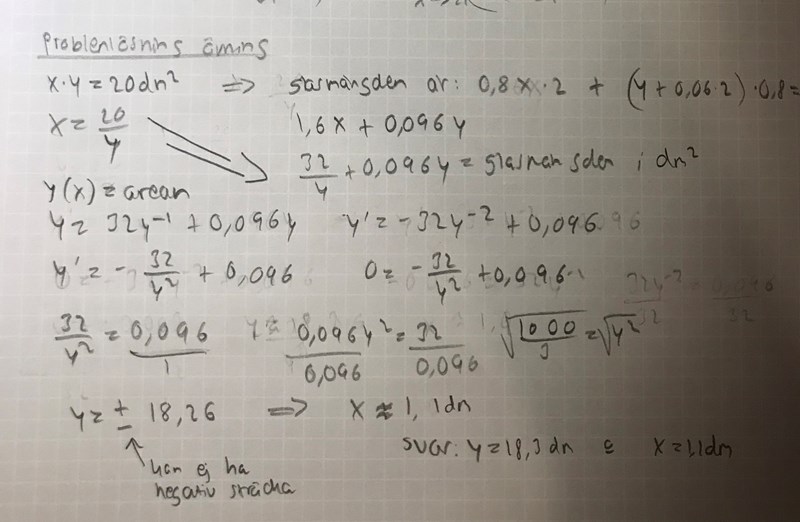 Problemlösning ämins
x·y = 20dm² => glasmängden är: 0,8x·2 + (y+0,06·2)·0,8=
x = 20/y 1,6x + 0,096y
32/y + 0,096y = glasmängden i dm²
y(x) = arean
y = 32y⁻¹ + 0,096y y' = -32y⁻² + 0,096
y' = - 32/y² + 0,096 0 = - 32/y² + 0,096
32/y² = 0,096/1 0,096y²/0,096 = 32/0,096 √1000/3 = √y²
y = ± 18,26 => x ≈ 1,1dm
svar: y = 18,3 dm & x = 1,1dm
kan ej ha
negativ sträcka